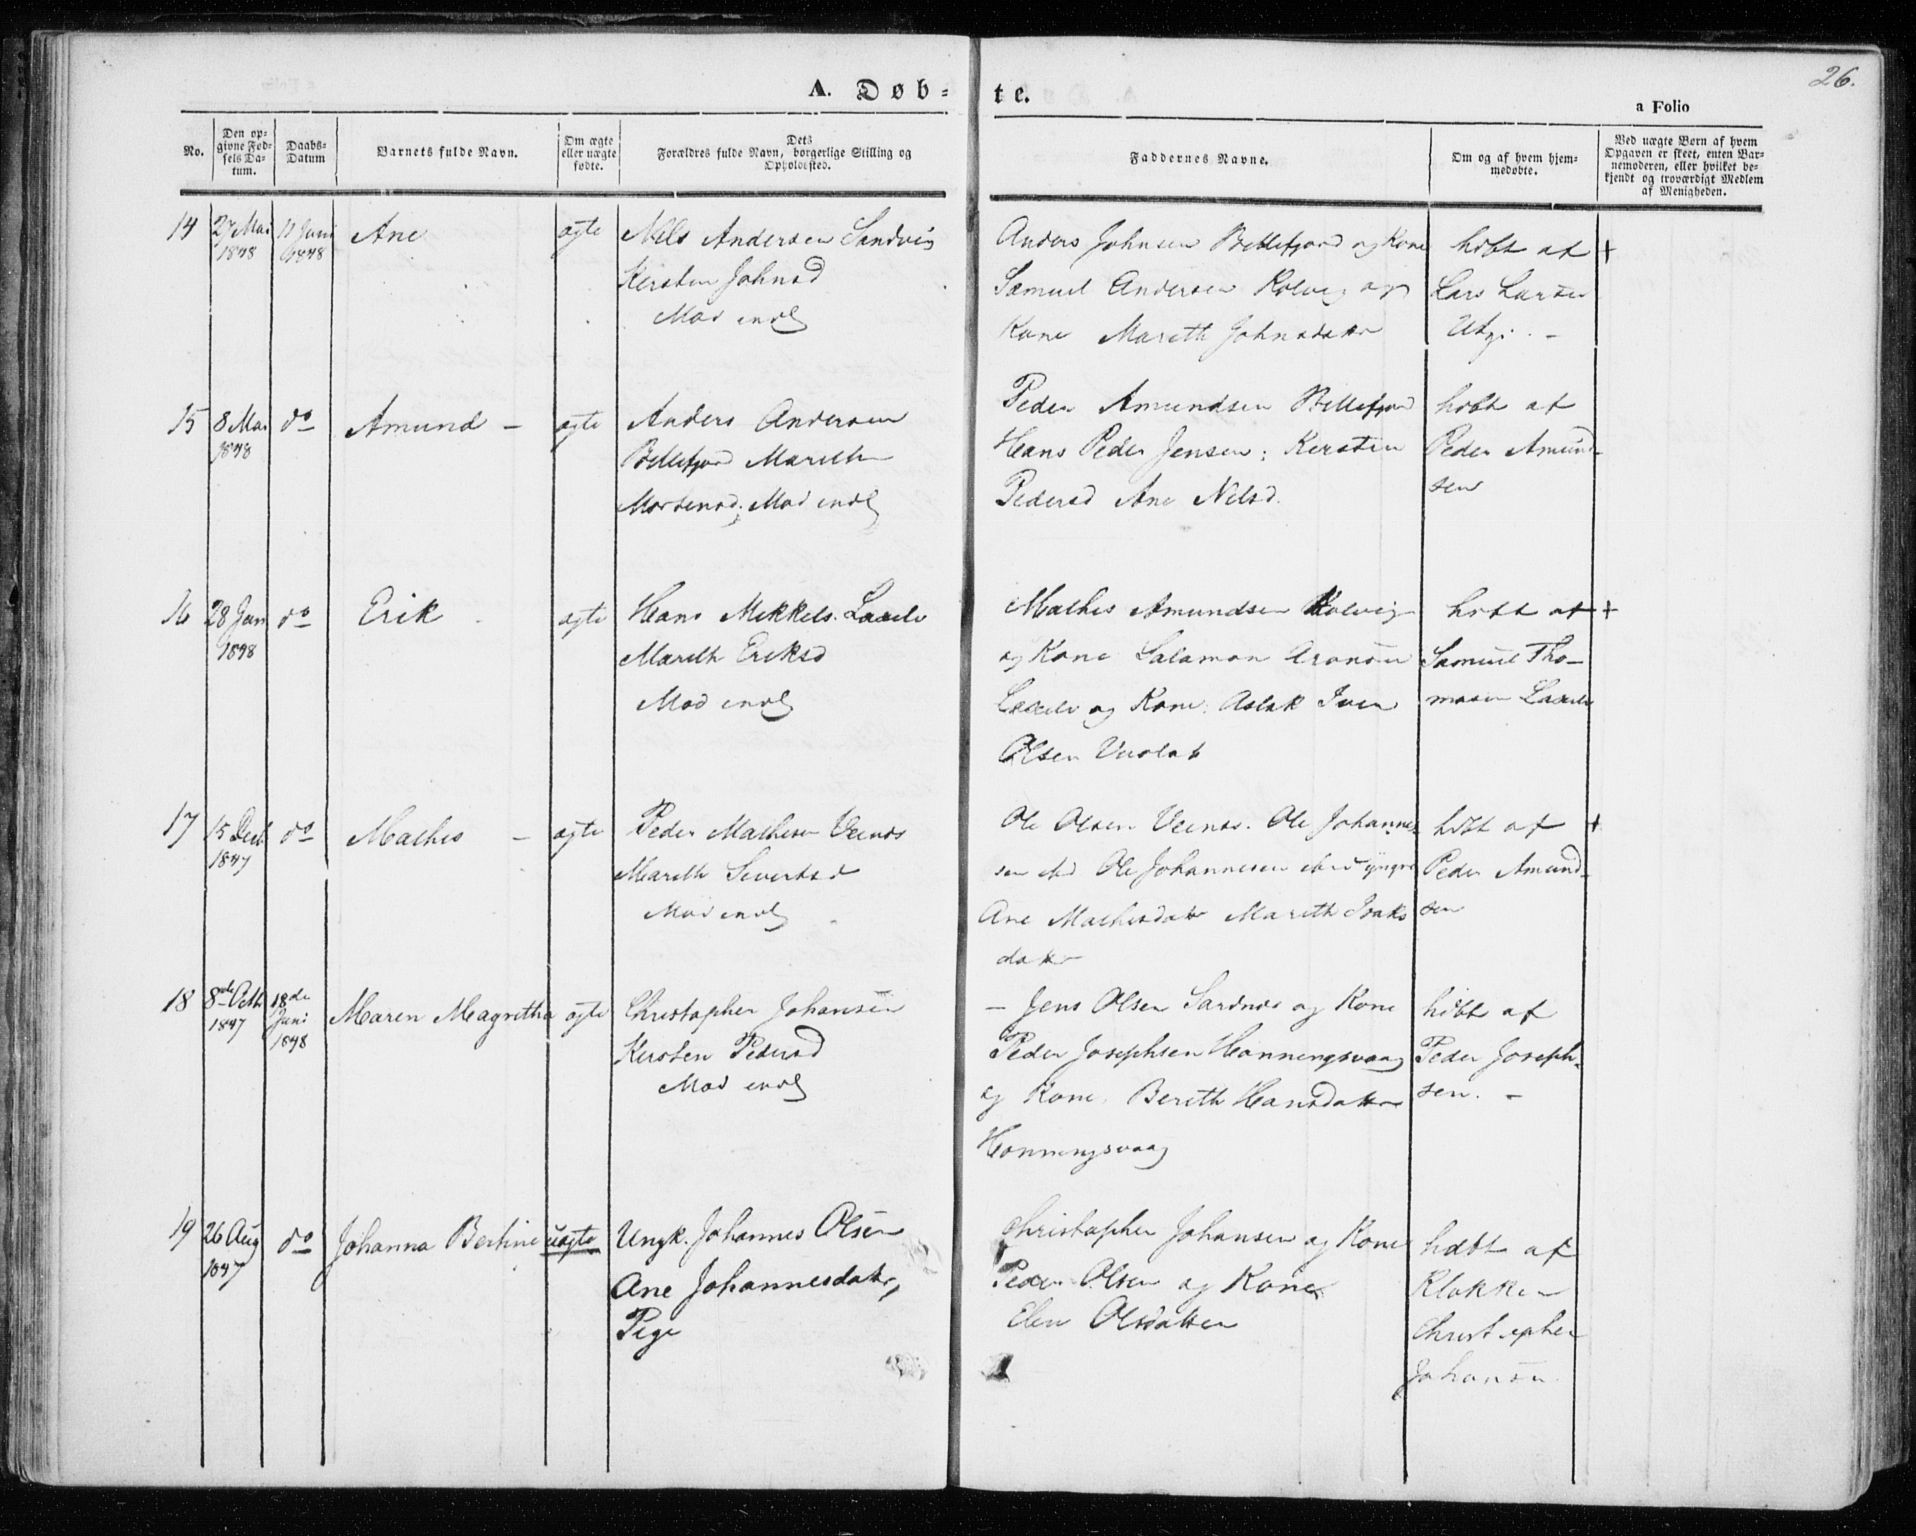 26.
A. Døb=
te.
a Folio
No.
Den op=
givne Fød=
sels Da=
tum.
Daabs=
Datum
Barnets fulde Navn.
Om ægte
eller uægte
fødte.
Dets
Forældres fulde Navn, borgerlige Stilling og
Opholdssted.
Faddernes Navne.
Om og af hvem hjem=
medøbte.
Ved uægte Børn af hvem
Opgaven er skeet, enten Bar=
nemoderen, eller hvilket be=
kjendt og troværdigt Medlem
af Menigheden.
14
27 Mai
1848
11 Juni
1848
Ane
ægte
Nils Andersen Sandvig
Kersten Johnsd
Mod indl
Anders Johnsen Billefjord og Kone
Samuel Andersen Kolvig og
Kone Mareth Johnsdattr
hdbt af
Lars Larsen
+
15
8 Mai
1848
do
Amund -
ægte
Anders Andersen
Billefjord Mareth
Mortensd. Mod indl
Peder Amundsen Billefjord
Hans Peder Jensen; Kersten
Pedersd Ane Nelsd.
hdbt af
Peder Amund-
sen
16
28 Jan
1848
do
Erik
ægte
Hans Mikkels. Laxelv
Mareth Eriksd
Mod indl
Mathis Amundsen Kolvig
og Kone Salamon Aronsen
Laxelv og Kone. Aslak Iver
Olsen
hdbt af
Samuel Tho-
masen Laxelv
+
17
15 Decb
1847
do
Mathis -
ægte
Peder Mathisen Veines
Mareth Sivertsd
Mod indl
Ole Olsen Veines. Ole Johannes-
sen Ole Johannesen den yngre
Ane Mathisdatr Mareth Isaks
datter
hdbt af
Peder Amund-
sen
+
18
8de Octb
1847
18de
Juni
1848
Maren Magretha
ægte
Christopher Johansen
Kersten Pedersd
Mod indl
- Jens Olsen Sardnes og Kone
Peder Josephsen Honningsvaag
og Kone. Bereth Hansdatter
Honningsvaag
hdbt af
Peder Joseph-
sen. -
19
26 Aug
1847
do
Johanna Bertine
uægte
Ungk. Johannes Olsen
Ane Johannesdatr,
Pige
Christopher Johansen og Kone
Peder Olsen og Kone
Elen Olsdatter
hdbt af
Klokker
Christopher
Johansen